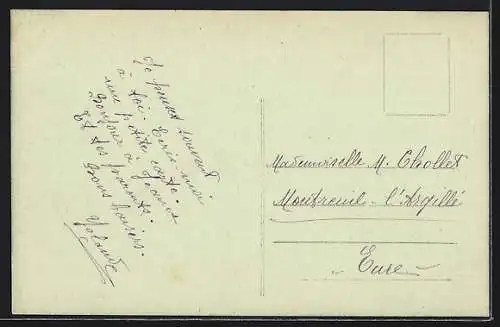 Je pense souvent
à toi. Ecris-moi
une petite carte.
Bonjour à Jeanne
Et tes parents.
Bons baisers.
Yolande
Mademoiselle M. Chollet
Montreuil - l'Argillé
Eure